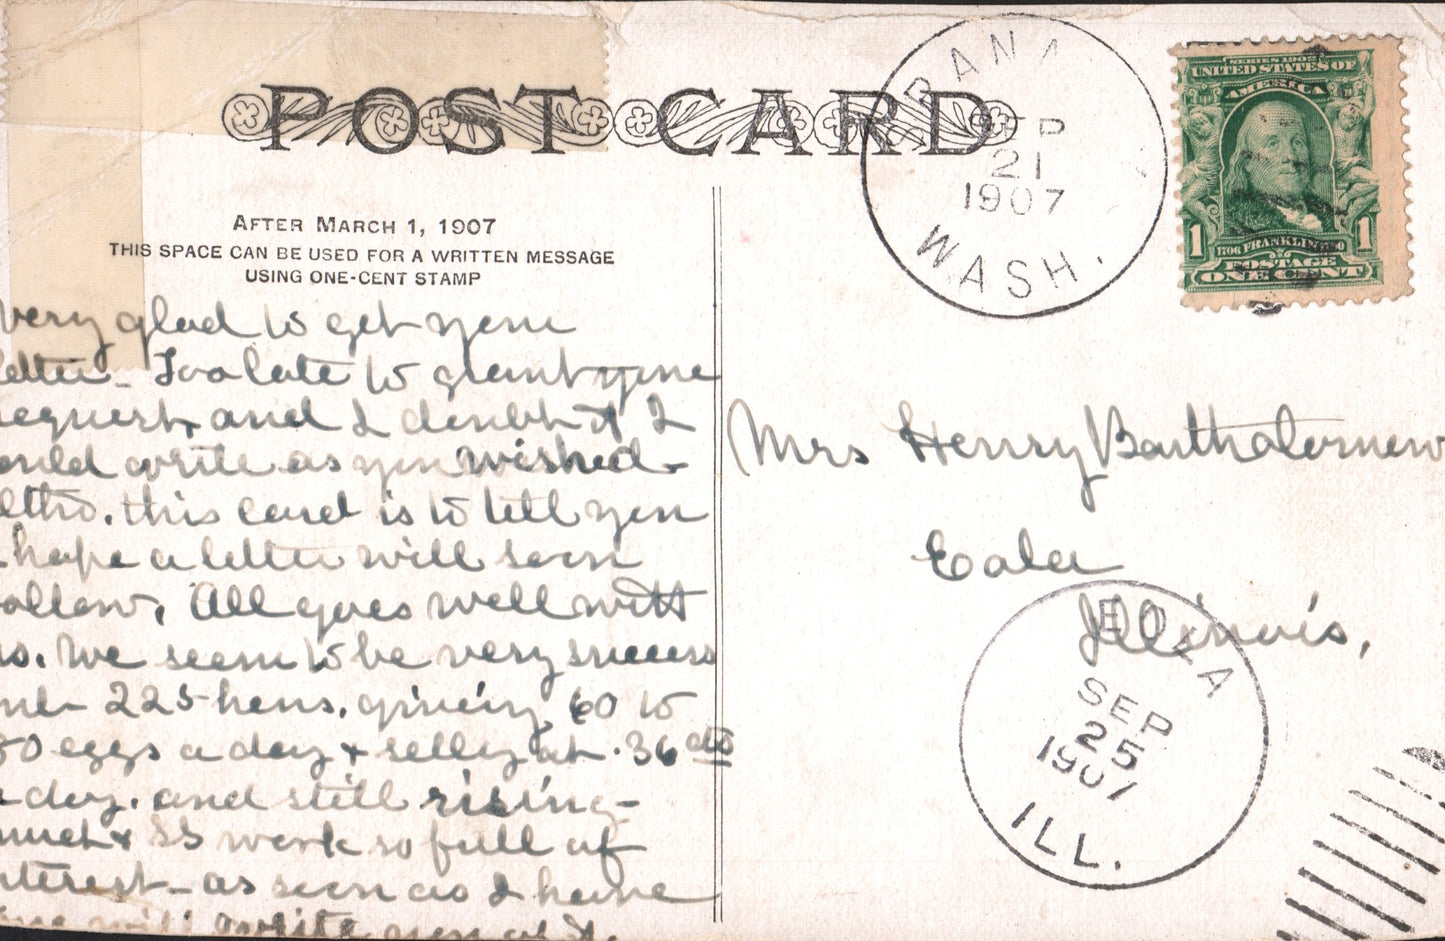 POST CARD
AFTER MARCH 1, 1907
THIS SPACE CAN BE USED FOR A WRITTEN MESSAGE
USING ONE-CENT STAMP
very glad to get your
letter - Too late to grant your
request, and I doubt if I
ould write as you wished -
altho. this card is to tell you
hope a letter will soon
ollow. All goes well with
us. We seem to be very success
225 hens. giving 60 to
80 eggs a day & selling at .36 cts
day. and still rising -
& SS work so full of
nterest - as soon as I have
time will write you of it.
RBANA
SEP
21
1907
WASH.
SERIES 1902
UNITED STATES OF
AMERICA
1 1706 FRANKLIN 1790 1
POSTAGE
ONE CENT
Mrs Henry Bartholomew
Eola
Illinois.
EOLA
SEP
25
1907
ILL.